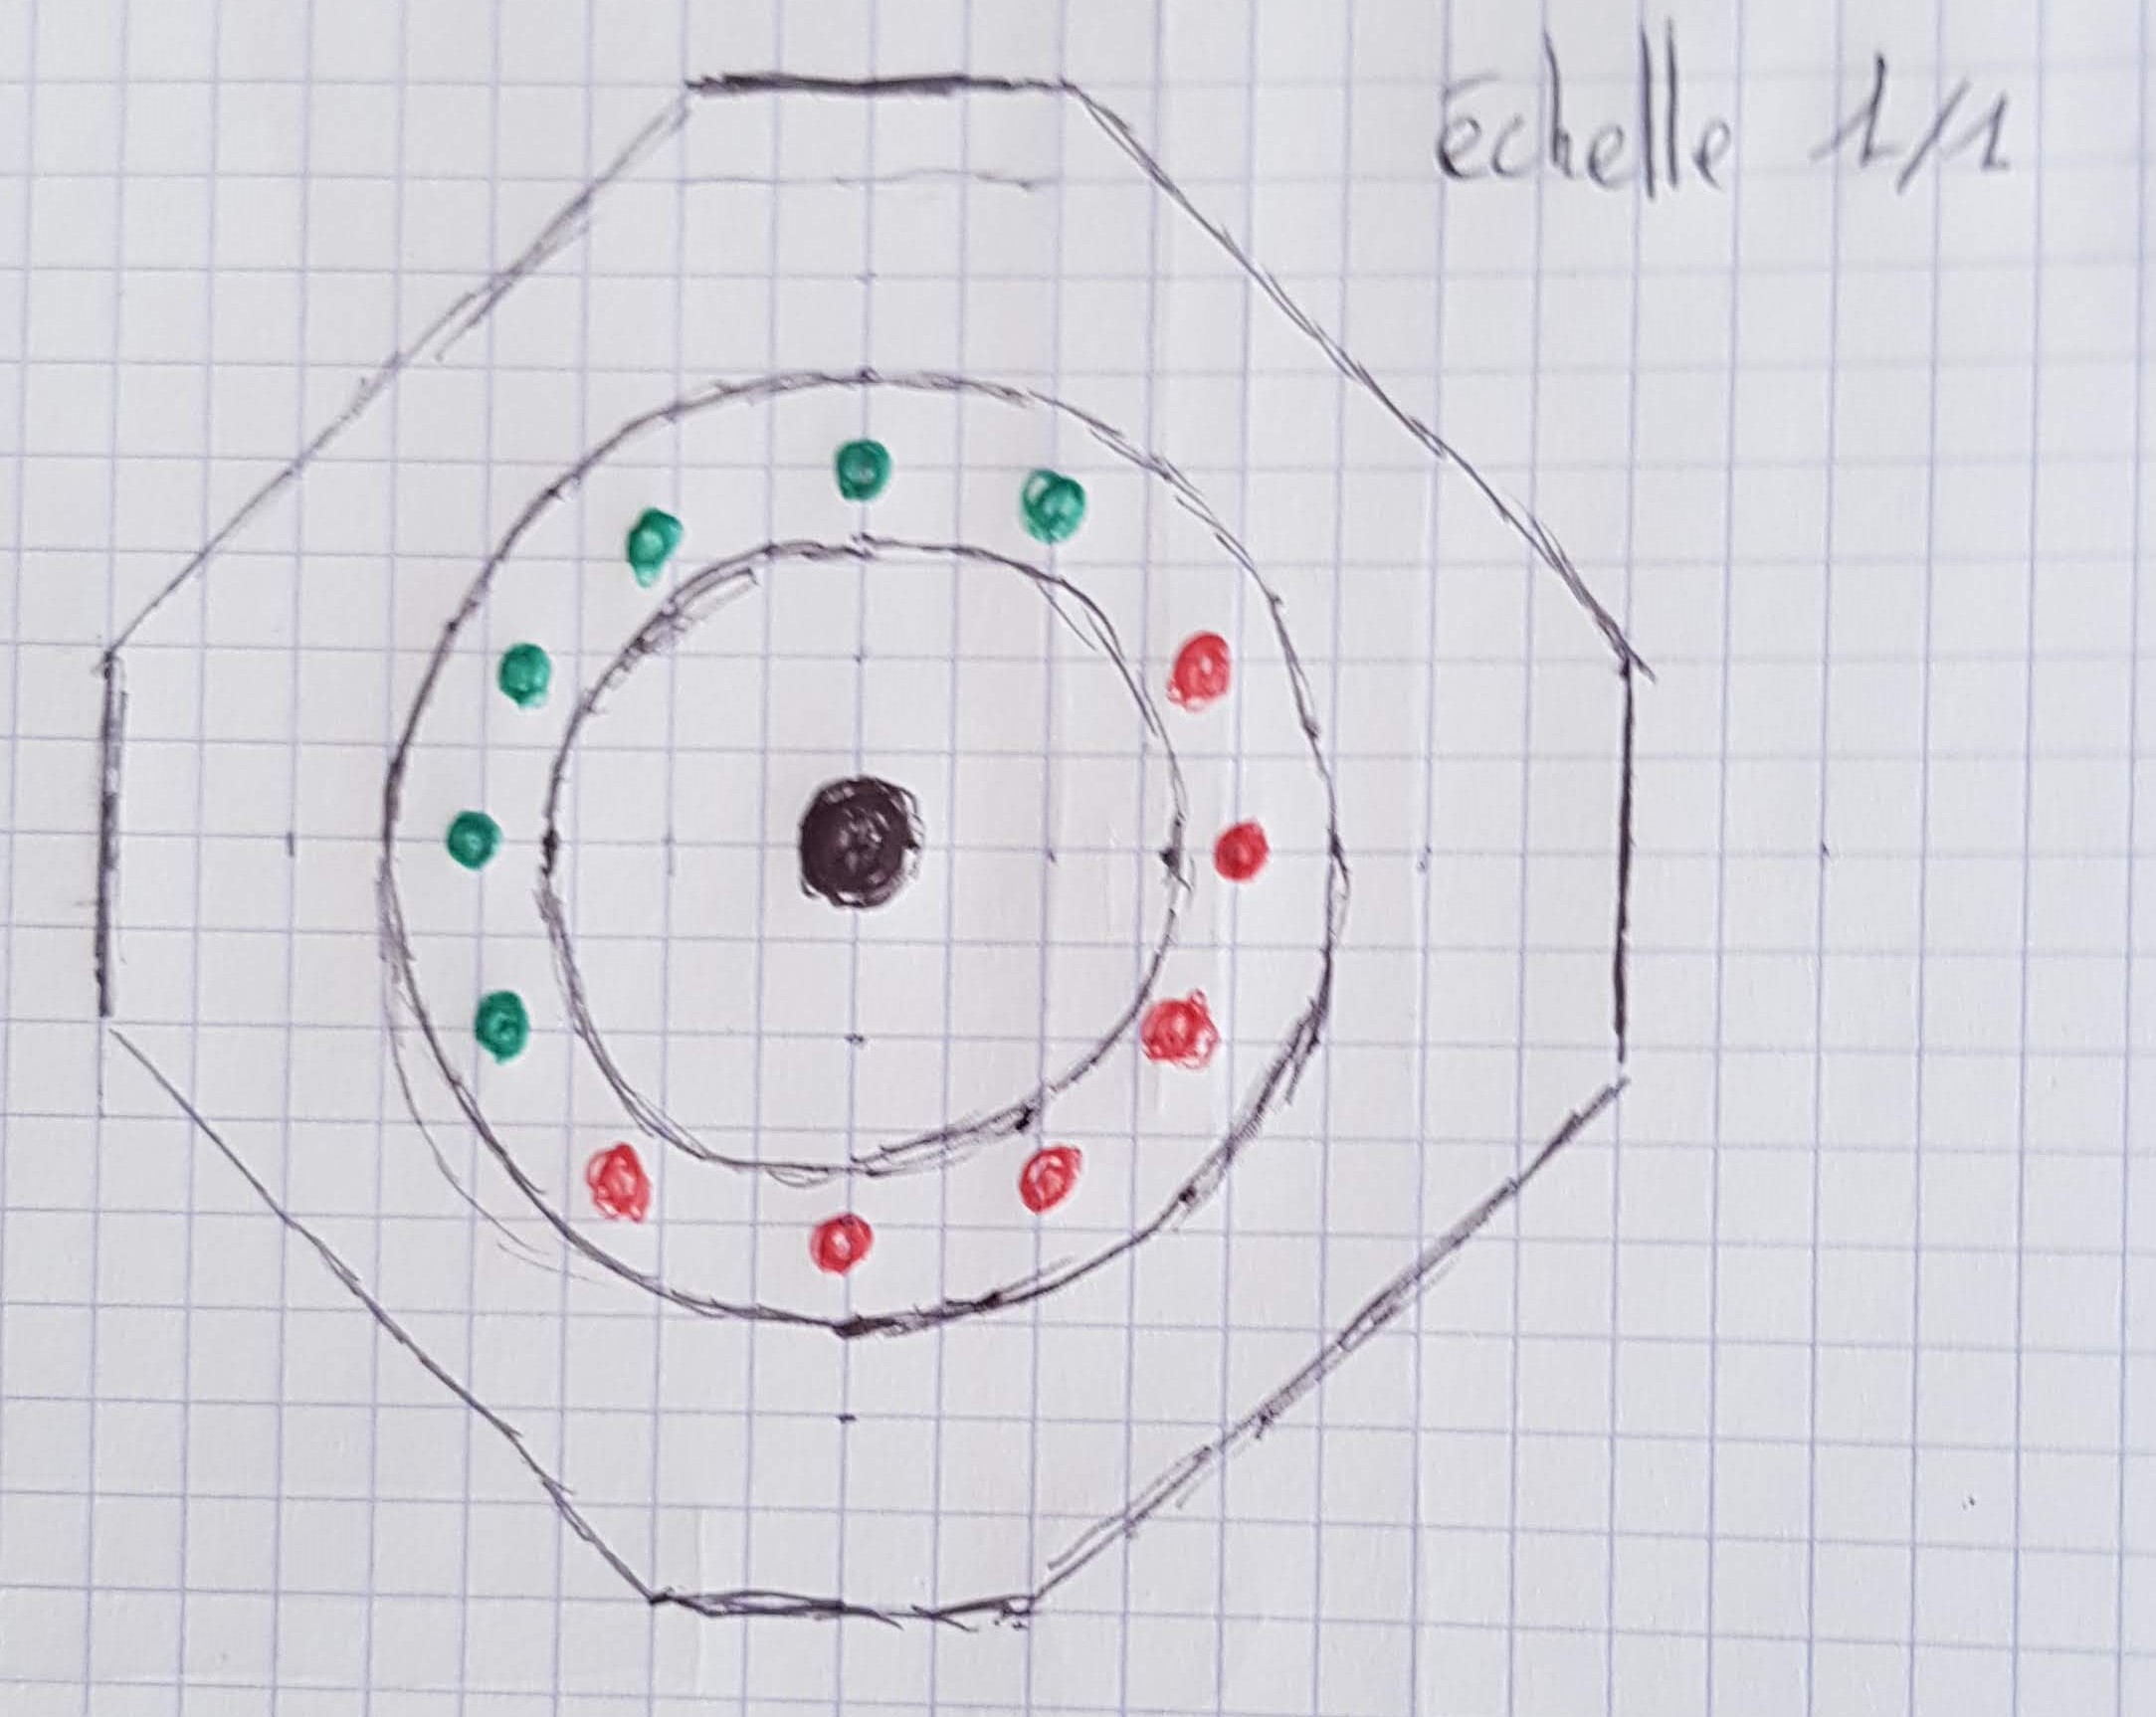 échelle 1/1